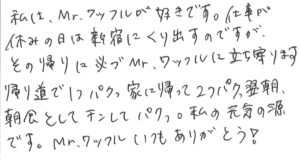 私は、Mr.ワッフルが好きです。仕事が
休みの日は新宿にくり出すのですが、
その帰りに必ずMr.ワッフルに立ち寄ります
帰り道で1つパクッ家に帰って2つパク、翌朝、
朝食としてチンしてパクっ。私の元気の源
です。Mr.ワッフルいつもありがとう!